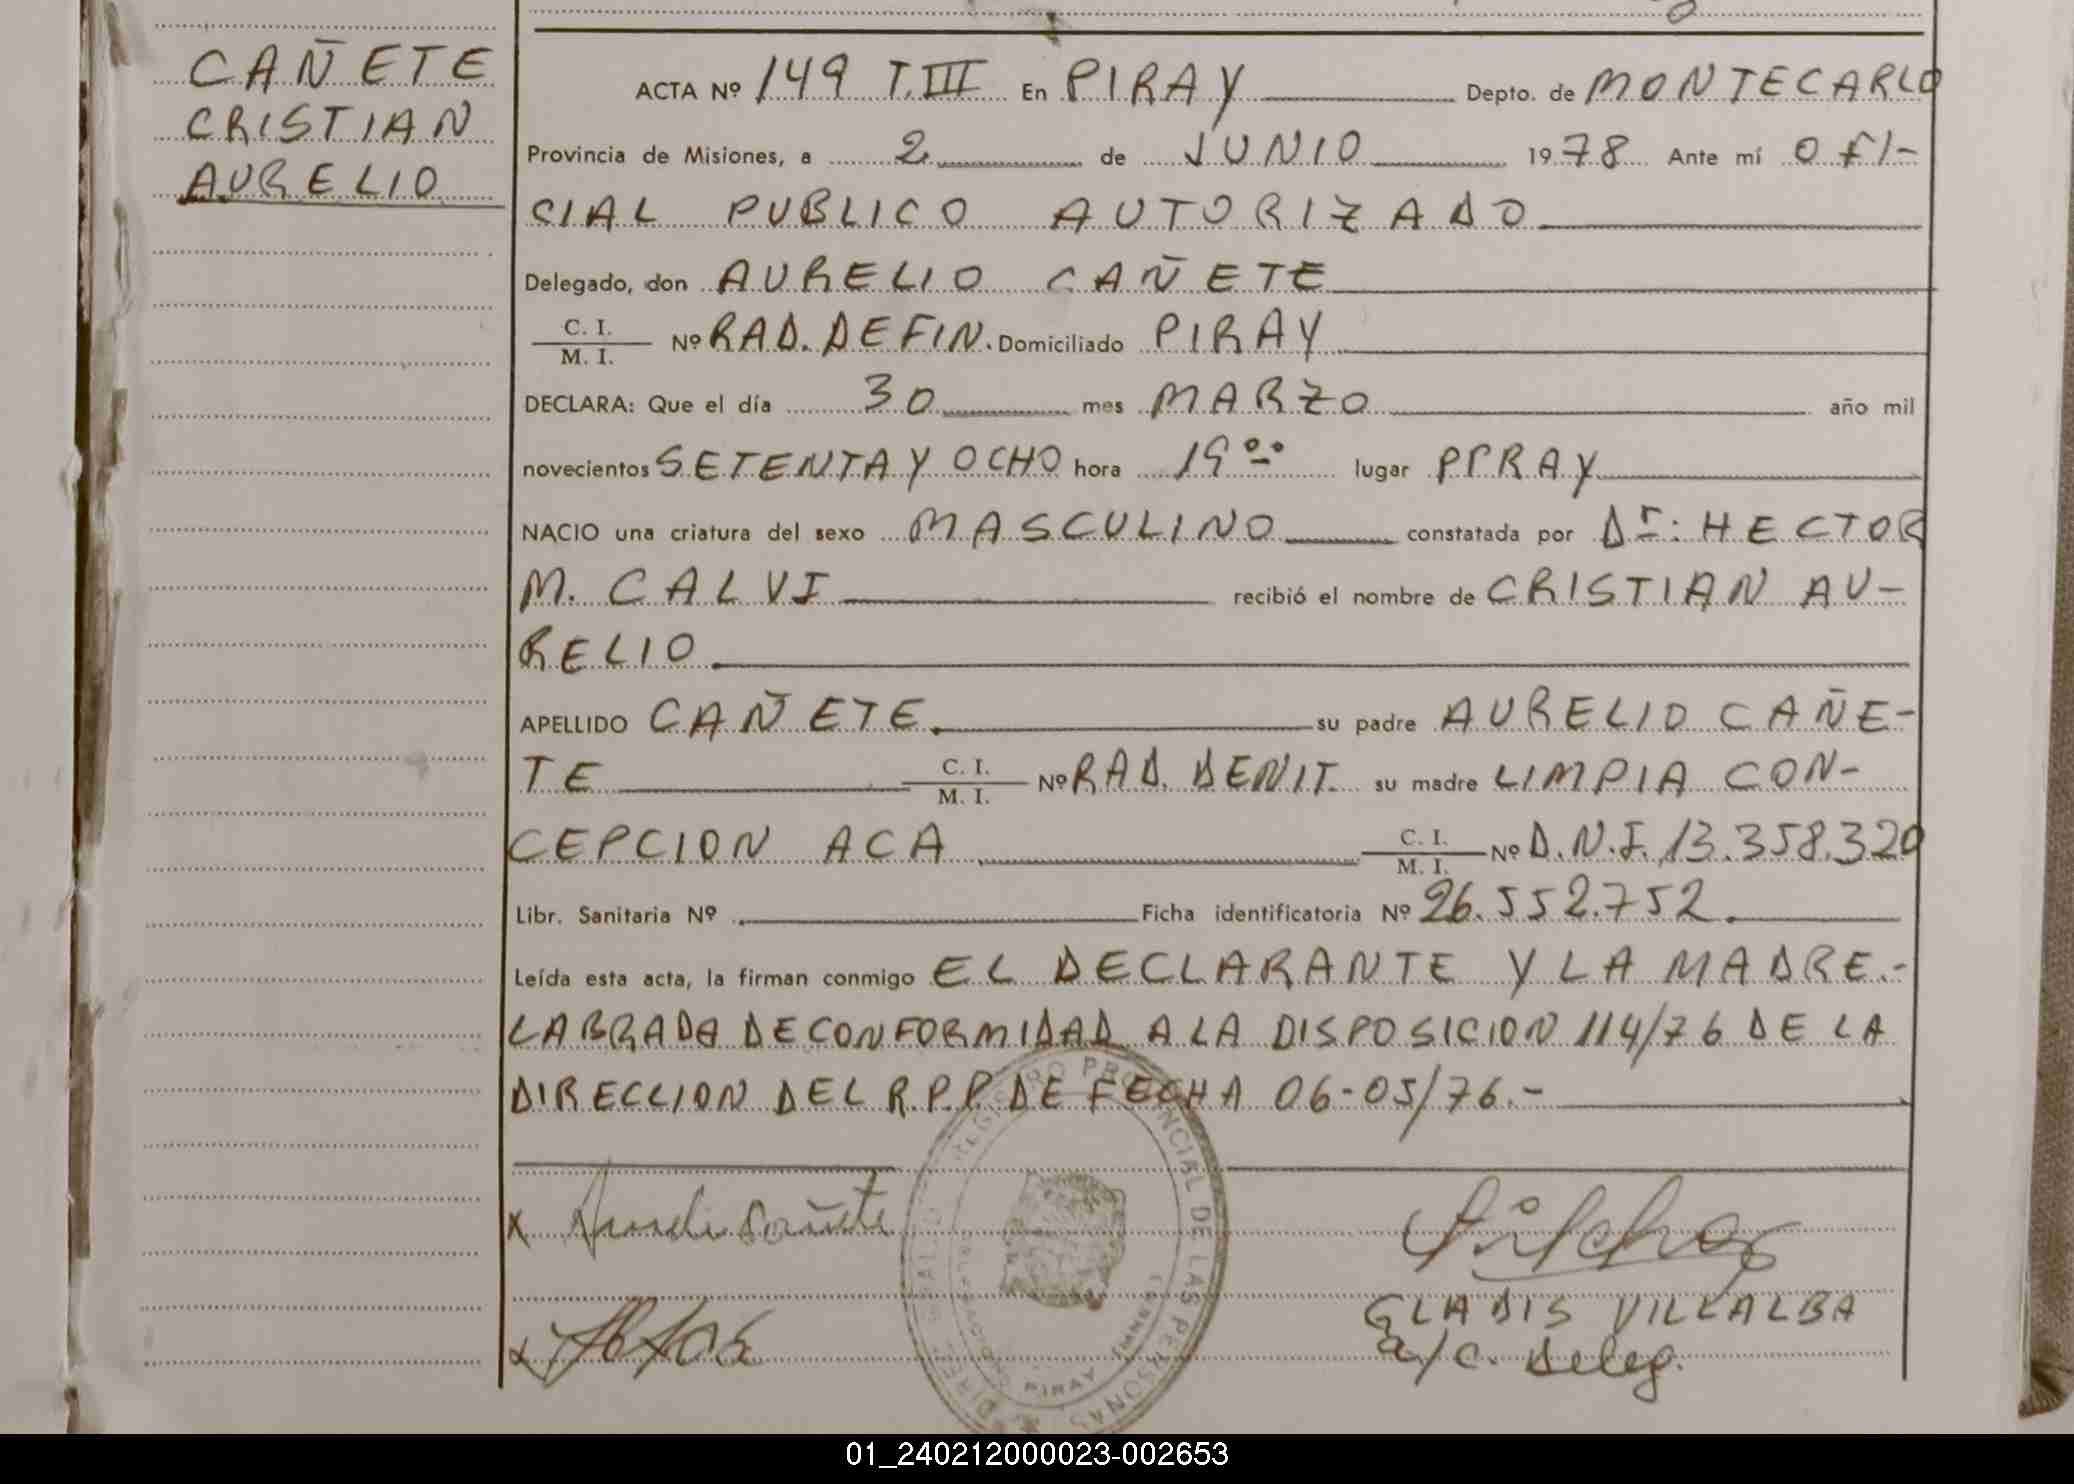 CAÑETE
CRISTIAN
AURELIO
ACTA Nº 149 T.III En PIRAY Depto. de MONTECARLO
Provincia de Misiones, a 2 de JUNIO 1978 Ante mí OFI-
CIAL PUBLICO AUTORIZADO
Delegado, don AURELIO CAÑETE
C. I.
M. I. Nº RAD. DEFIN. Domiciliado PIRAY
DECLARA: Que el día 30 mes MARZO año mil
novecientos SETENTA Y OCHO hora 19 °° lugar PIRAY
NACIO una criatura del sexo MASCULINO constatada por Dr: HECTOR
M. CALVI recibió el nombre de CRISTIAN AU-
RELIO
APELLIDO CAÑETE su padre AURELIO CAÑE-
TE C. I. M. I. Nº RAD. DENIT. su madre LIMPIA CON-
CEPCION ACA C. I. M. I. Nº D.N.I. 13.358.320
Libr. Sanitaria Nº Ficha identificatoria Nº 26.552.752
Leída esta acta, la firman conmigo EL DECLARANTE Y LA MADRE.-
LABRADA DE CONFORMIDAD A LA DISPOSICION 114/76 DE LA
DIRECCION DEL R.P.P. DE FECHA 06-05/76.-
REGISTRO PROVINCIAL DE LAS PERSONAS
PIRAY
x Aurelio Cañete
GLADIS VILLALBA
a/c. Deleg.
01_240212000023-002653